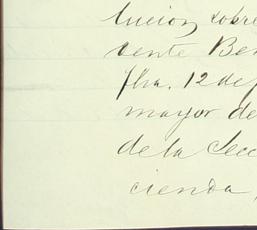 lucion sobre
vente Ben
fha. 12 de
mayor de
de la Secc
cienda,